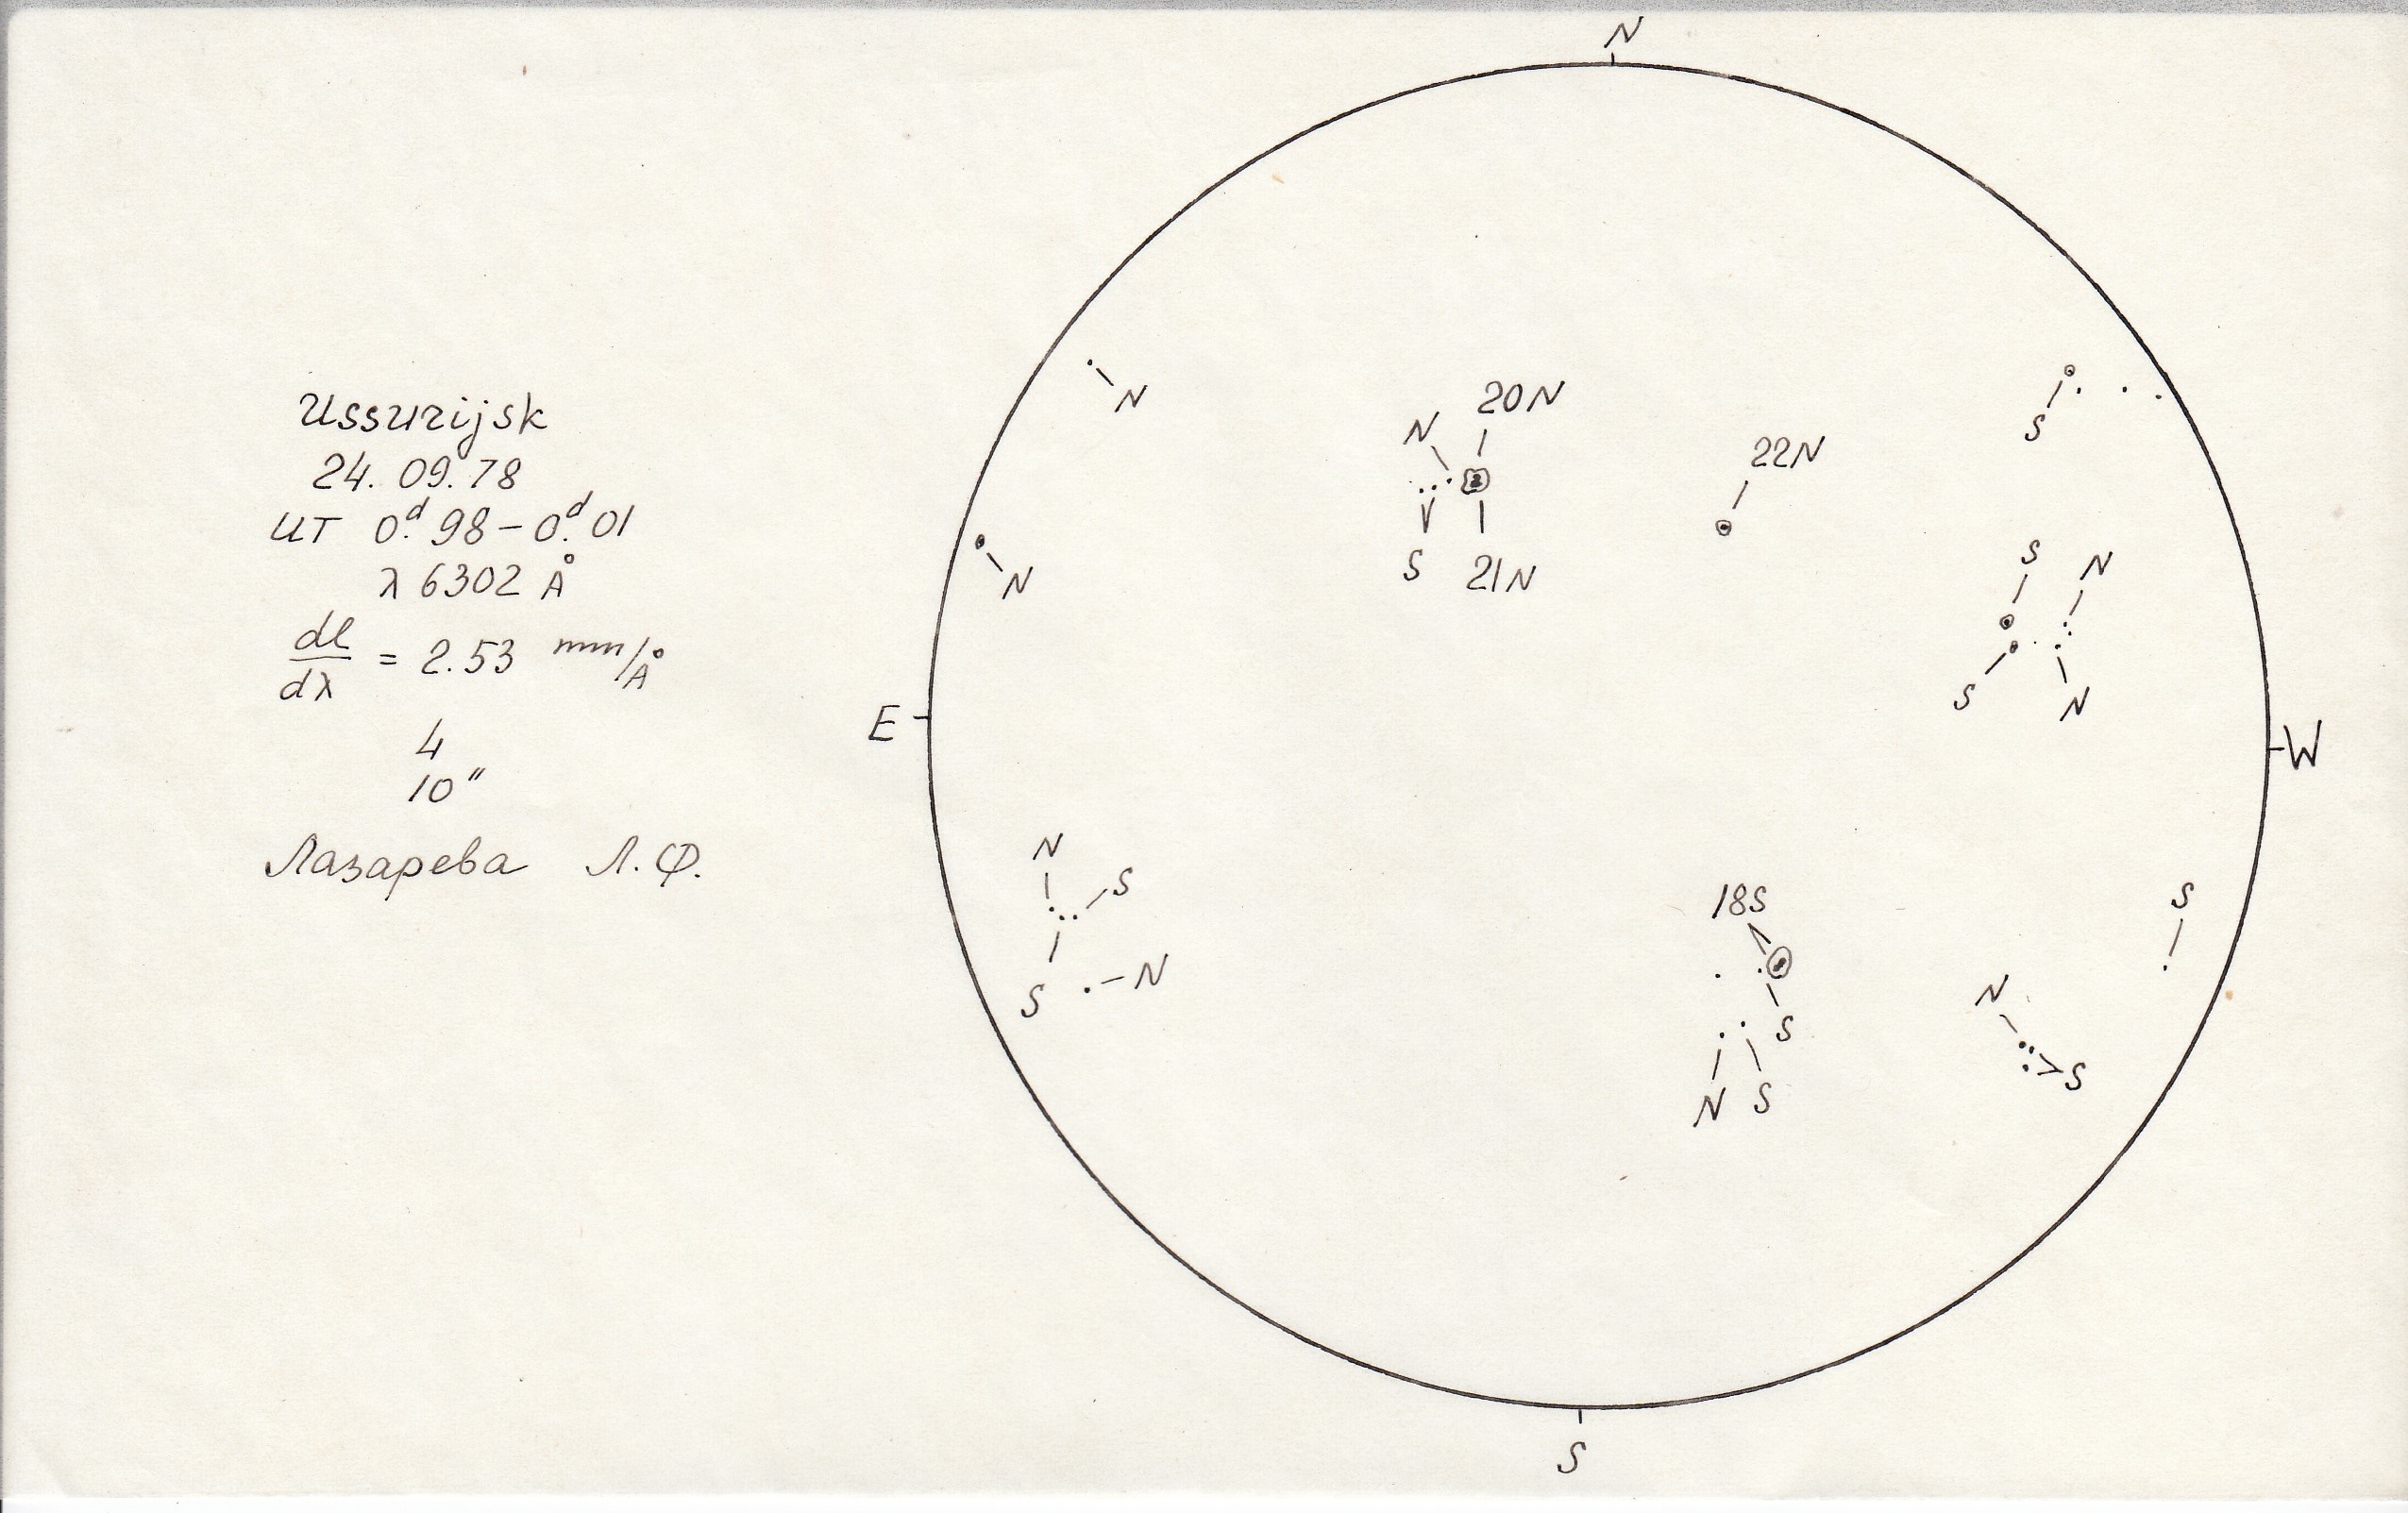 Ussurijsk
24. 09. 78
UT 0.ᵈ98 – 0.ᵈ01
λ 6302 Å
dl/dλ = 2.53 mm/Å
4
10"
Лазарева Л. Ф.
N
N
20N
N
22N
S
N
S 21N
S N
S
N
E
W
N
S
18S
S
N
S
N
S
N S
S
S